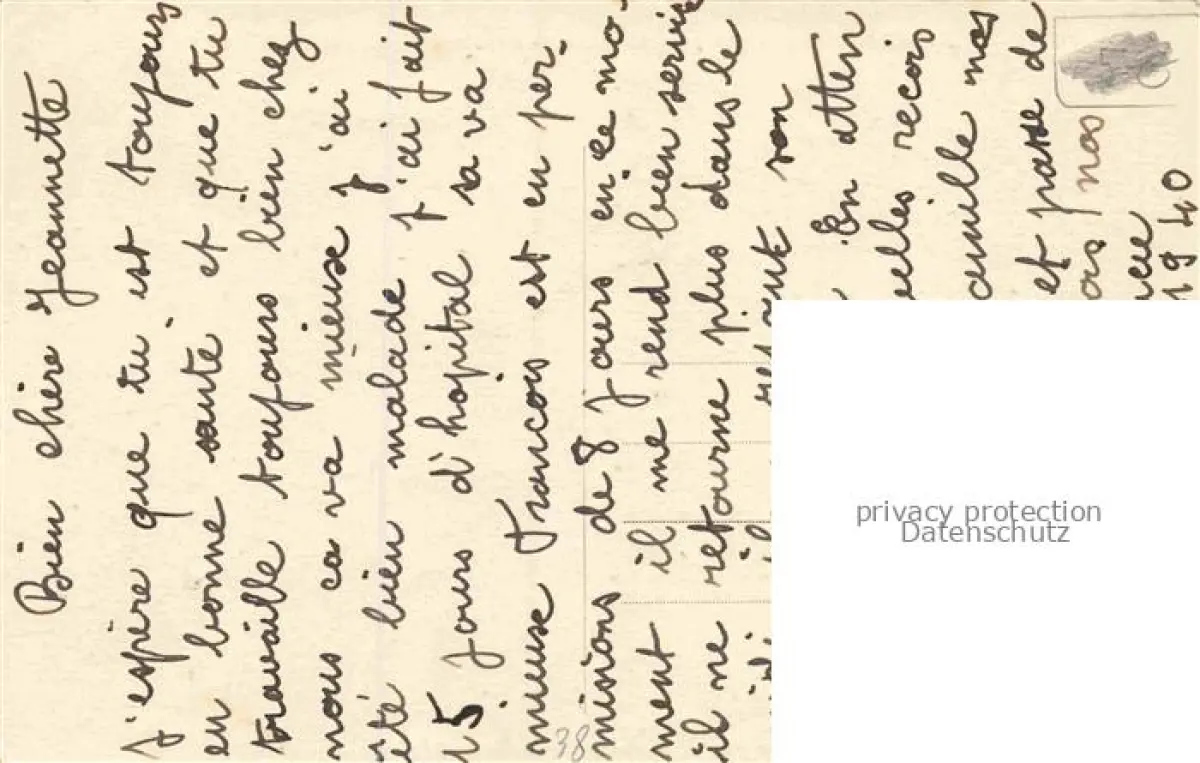 Bien chère Jeannette
J'espère que tu est toujours
en bonne santé et que tu
travaille toujours bien chez
nous ca va mieuse j'ai
été bien malade j'ai fait
15 jours d'hopital sa va
mieuse Francois est en per-
misions de 8 jours en ce mo-
ment il me rend bien servi
il ne retourne plus dans le
son
En atten
elles recois
famille nos
et passe de
nos
1940
38
privacy protection
Datenschutz